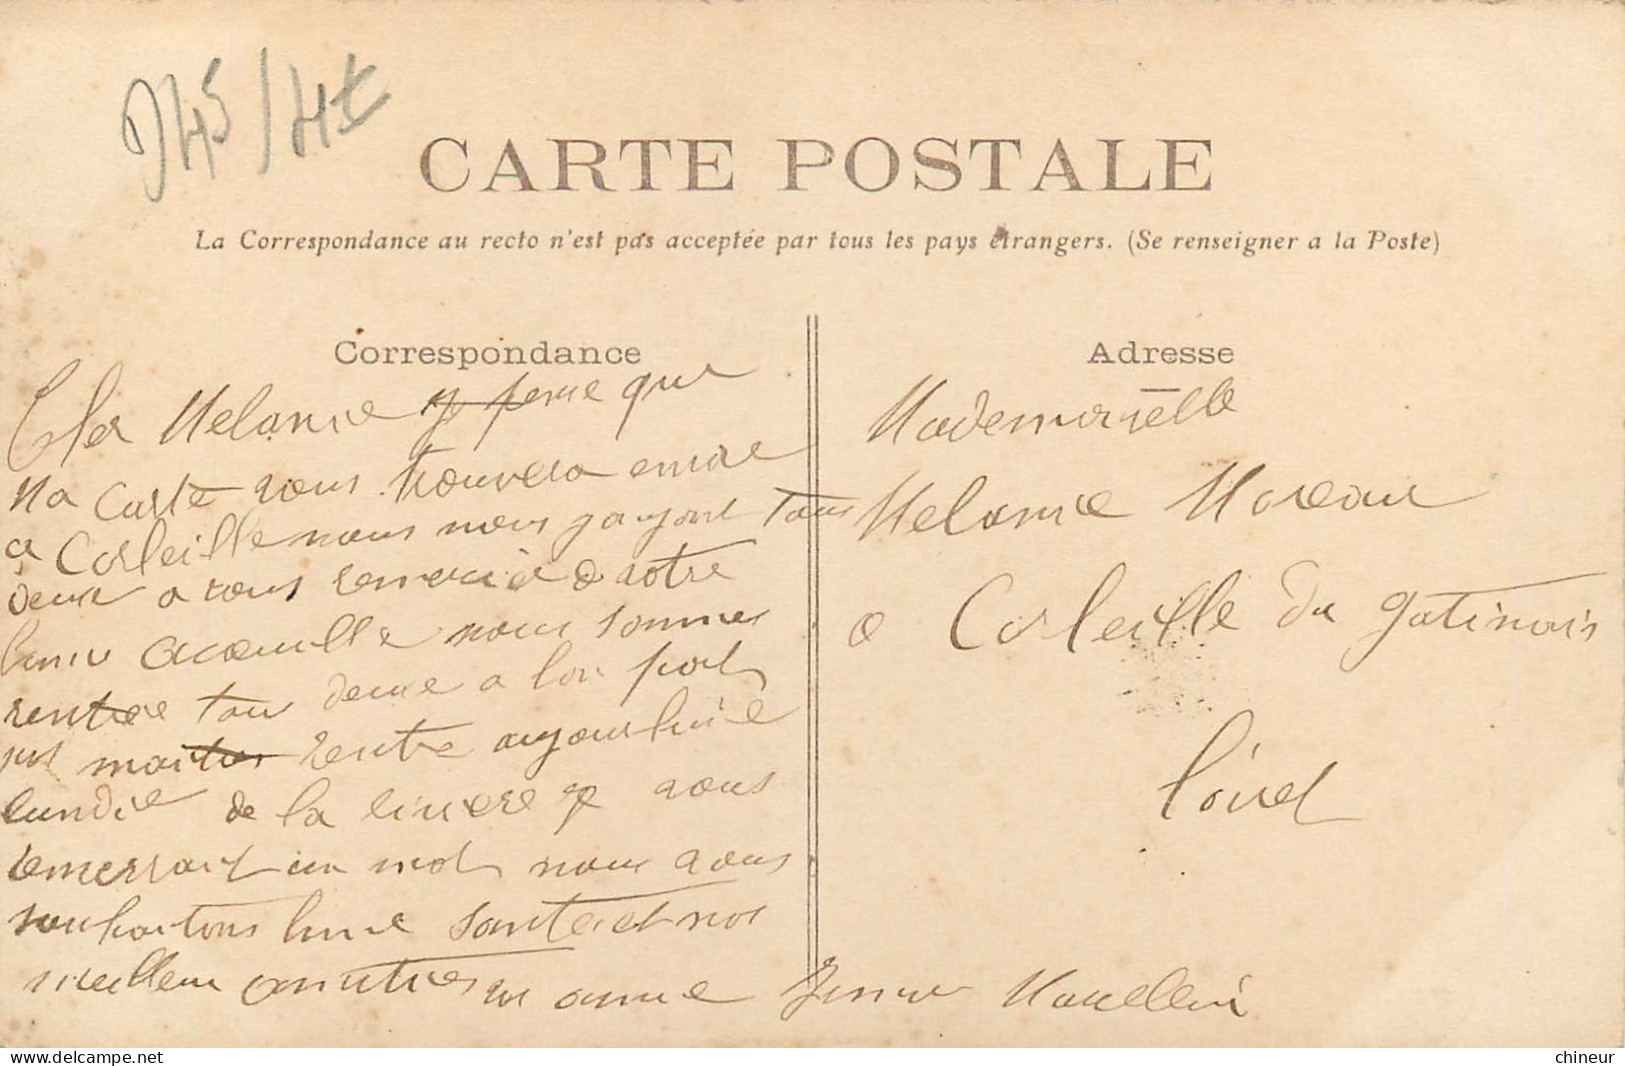 D45/
CARTE POSTALE
La Correspondance au recto n'est pas acceptée par tous les pays étrangers. (Se renseigner a la Poste)
Correspondance
Cher Melanie je pense que
Ma Carte vous trouvera encore
a Corbeille nous nous joignons tous
deux a vous remercié de votre
bonne accueille nous sommes
rentree tous deux a bon port
rentre aujourhuie
lundie de la je vous
remersait un mot nous vous
souhaitons bonne santée et nos
meilleur amitiés
Adresse
Mademoiselle
Melanie Moreau
a Corbeille du gatinais
Loiret
delcampe.net
chineur